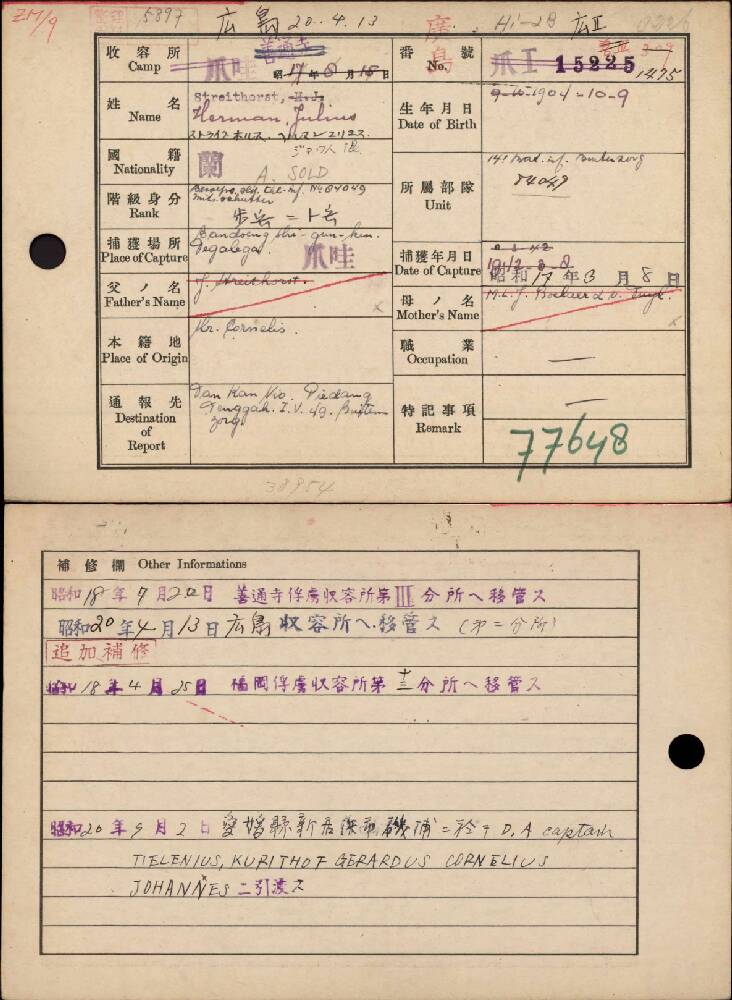 5897 広島 20.4.13 廣島 Hi-2B 広Ⅱ
収容所 Camp 爪哇 善通寺 昭 17年8月15日
番號 No. 爪I 15225 1475
姓名 Name Streithorst, H.J.
Herman, Julius
生年月日 Date of Birth 9-10-1904-10-9
國籍 Nationality 蘭
A. SOLD
階級身分 Rank
mil. schutter
所屬部隊 Unit 141
84049
捕獲場所 Place of Capture Bandoeng shi-gun-kan.
Tegalega. 爪哇
捕獲年月日 Date of Capture 8-3-42
1942-3-8
昭和17年3月8日
父ノ名 Father's Name J. Streithorst.
母ノ名 Mother's Name M.L.J.
本籍地 Place of Origin Mr. Cornelis.
職業 Occupation —
通報先 Destination of Report Tan Kan Kio. Padang
Tenggah. I.V. 49. Buiten
zorg
特記事項 Remark —
77648
38954
補修欄 Other Informations
昭和18年7月20日 善通寺俘虜収容所第III分所ヘ移管ス
昭和20年4月13日広島収容所ヘ移管ス (第二分所)
追加補修
昭和18年4月25日 福岡俘虜収容所第十三分所ヘ移管ス
昭和20年9月2日 愛媛縣新居浜市磯浦ニ於テ D.A captain
TIELENIUS, KURITHOF GERARDUS CORNELIUS
JOHANNES ニ引渡ス